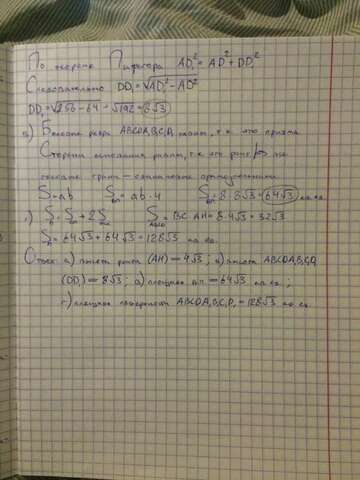 По теореме Пифагора AD₁² = AD² + DD₁²
Следовательно DD₁ = √AD₁² - AD²
DD₁ = √256 - 64 = √192 = 8√3
в) Боковые ребра ABCDA₁B₁C₁D₁ равны, т.к. это призма
Стороны основания равны, т.к. это ромб, то
боковые грани - одинаковые прямоугольники
S = ab S = ab · 4 S = 8 · 8√3 = 64√3 кв. см.
г) S = S + 2S S = BC · AH = 8 · 4√3 = 32√3
S = 64√3 + 64√3 = 128√3 кв. см.
Ответ: а) высота ромба (AH) = 4√3; б) высота ABCDA₁B₁C₁D₁
(DD₁) = 8√3; в) площадь = 64√3 кв. см.;
г) площадь поверхности ABCDA₁B₁C₁D₁ = 128√3 кв. см.